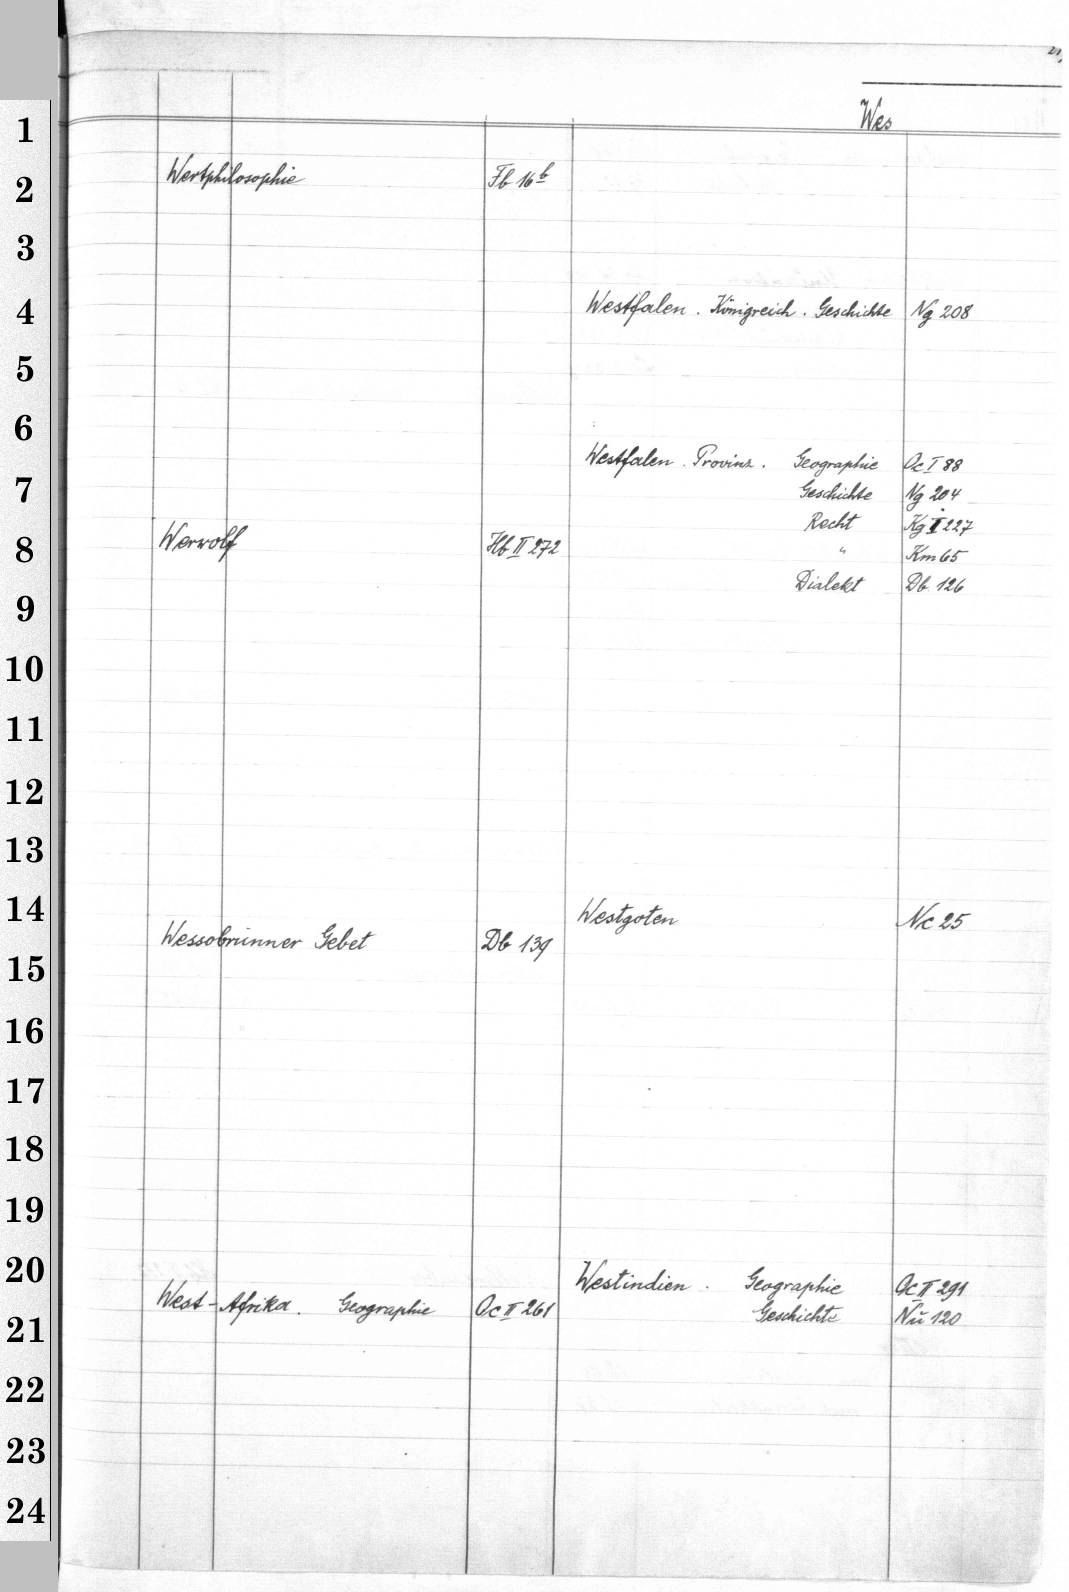 Wes
Wertphilosophie Fb 16 b
Werwolf Hb II 272
Wessobrunner Gebet Db 139
West-Afrika. Geographie Oc II 261
Westfalen. Königreich. Geschichte Ng 208
Westfalen. Provinz. Geographie Oc I 88
Geschichte Ng 204
Recht Kg I 227
" Km 65
Dialekt Db 126
Westgoten Nc 25
Westindien. Geographie Oc II 291
Geschichte Nü 120
1
2
3
4
5
6
7
8
9
10
11
12
13
14
15
16
17
18
19
20
21
22
23
24